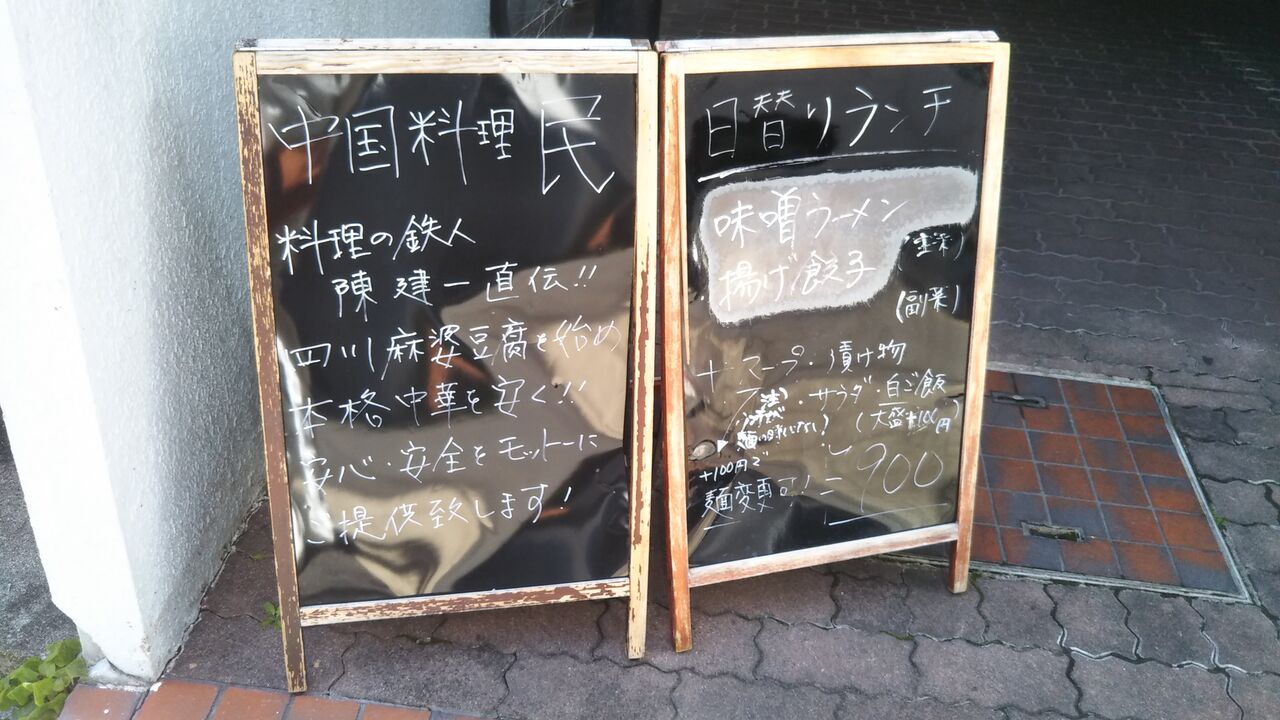 中国料理 民
料理の鉄人
陳建一直伝!!
四川麻婆豆腐を始め
本格中華を安く!!
安心・安全をモットーに
ご提供致します!
日替りランチ
味噌ラーメン
(主菜)
揚げ餃子
(副菜)
+ スープ・漬け物
・サラダ・白ご飯
(大盛+100円)
900
+100円で
麺変更可!